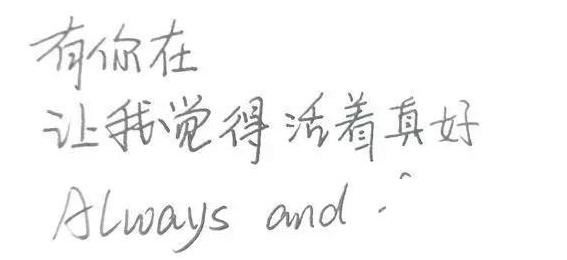 有你在
让我觉得活着真好
Always and